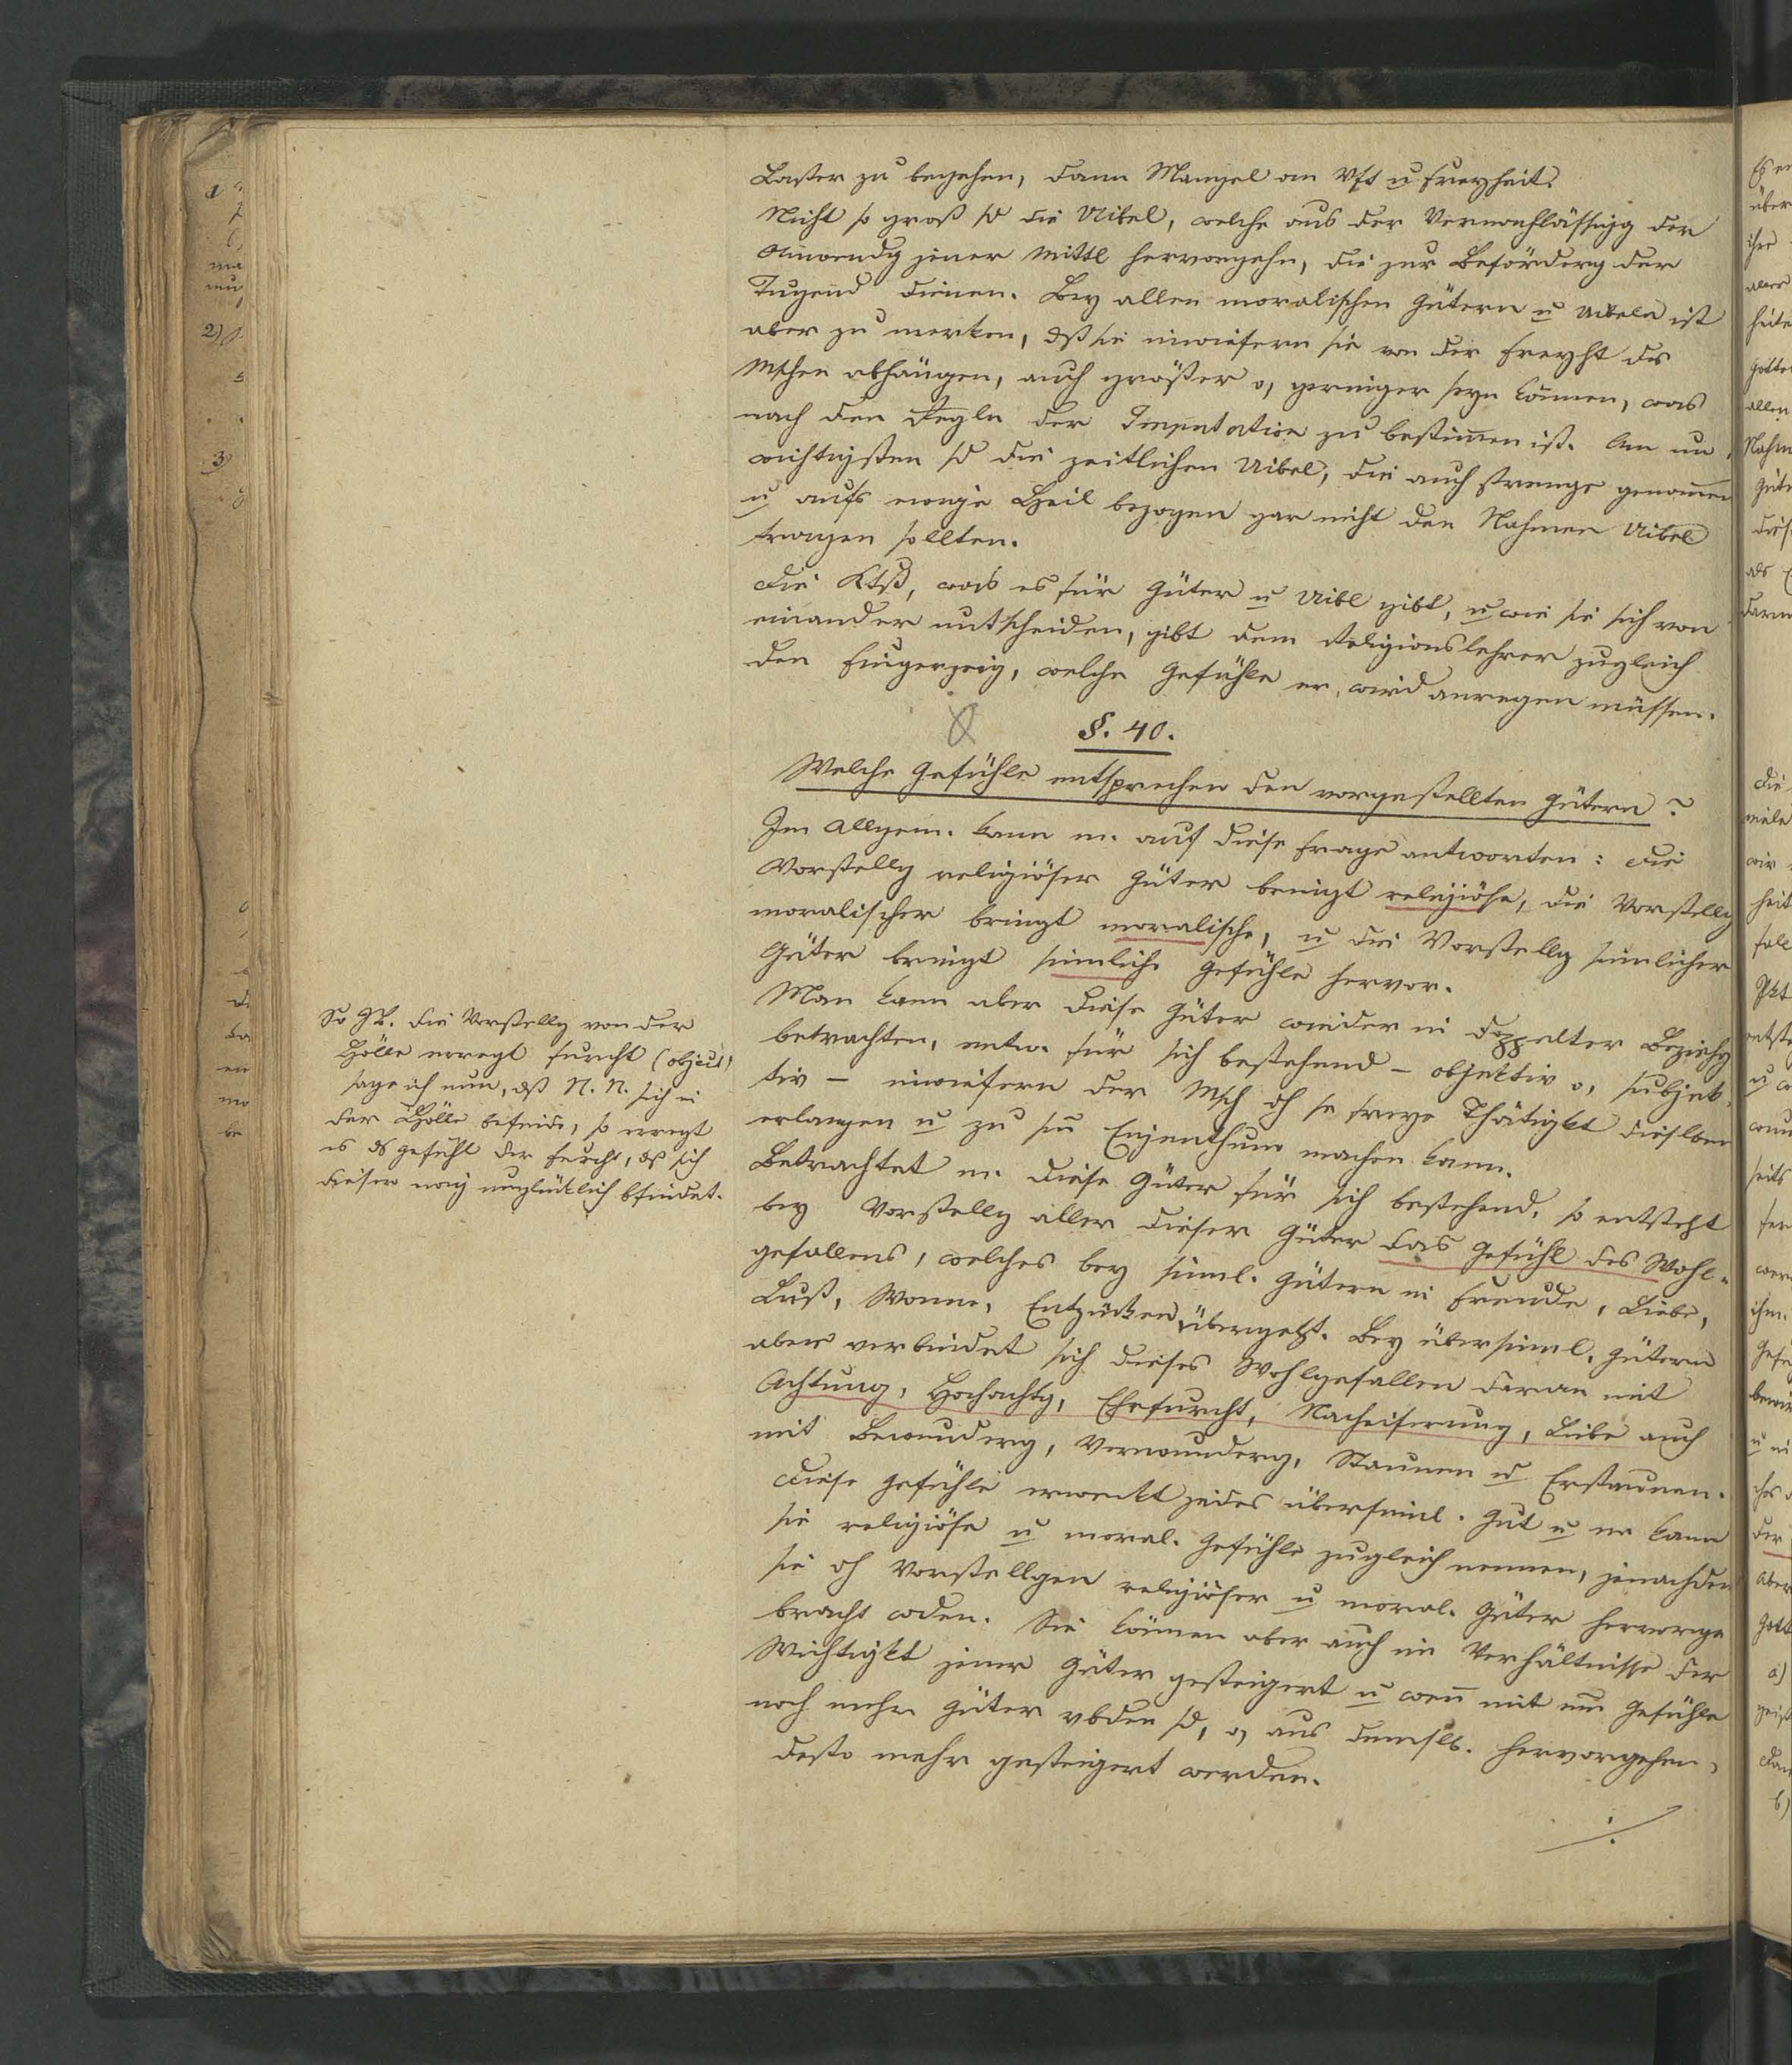 Laster zu begehen, dann Mangel an Vft u Freyheit.
Nicht so groß sd die Uibel, welche aus der Vernachlässigg der
Anwendg jener Mittl hervorgehn, die zur Beförderg der
Tugend dienen. Bey allen moralischen Gütern u Uibeln ist
aber zu merken, dß sie inwiefern sie von der Freyht des
Mschen abhängen, auch größer o, geringer seyn können, was
nach den Regln der Imputation zu bestimmen ist. Am un
wichtigsten sd die zeitlichen Uibel, die auch strenge genommen
u aufs ewige Heil bezogen gar nicht den Nahmen Uibel
tragen sollten.
Die Ktß, was es für Güter u Uibl gibt, u wie sie sich von
einander untscheiden, gibt dem Religionslehrer zugleich
den Fingerzeig, welche Gefühle er wird anregen müssen.
§. 40.
Welche Gefühle entsprechen den vorgestellten Gütern?
Im Allgem. kann m. auf diese Frage antworten: die
Vorstellg religiöser Güter bringt religiöse, die Vorstellg
moralischer bringt moralische, u die Vorstellg sinnlicher
Güter bringt sinnliche Gefühle hervor.
Man kann aber diese Güter wieder in doppelter Beziehg
betrachten, entw. für sich bestehend – objektiv o, subjek-
tiv – inwiefern der Msch dh se freye Thätigkt dieslben
erlangen u zu sm Eigenthum machen kann.
Betrachtet m. diese Güter für sich bestehend, so entsteht
bey Vorstellg aller dieser Güter das Gefühl des Wohl-
gefallens, welches bey sinnl. Gütern in Freude, Liebe,
Lust, Wonne, Entzücken übergeht. Bey übersinnl. Gütern
aber verbindet sich dieses Wohlgefallen daran mit
Achtung, Hochachtg, Ehrfurcht, Nacheiferung, Liebe auch
mit Bewunderg, Verwunderg, Staunen u Erstaunen.
Diese Gefühle erweckt jedes übersinnl. Gut u m kann
sie religiöse u moral. Gefühle zugleich nennen, jenachdem
sie dh Vorstellgen religiöser u moral. Güter hervorge
bracht wden. Sie können aber auch im Verhältnisse der
Wichtigkt jener Güter gesteigert u wenn mit em Gefühle
noch mehr Güter vbden sd, o, aus demslb. hervorgehen,
desto mehr gesteigert werden.
So zB. die Vorstellg von der
Hölle erregt Furcht (object)
sage ich nun, dß N. N. sich in
der Hölle befinde, so erregt
es ds Gefühl der Furcht, dß sich
dieser ewig unglücklich bfindet.